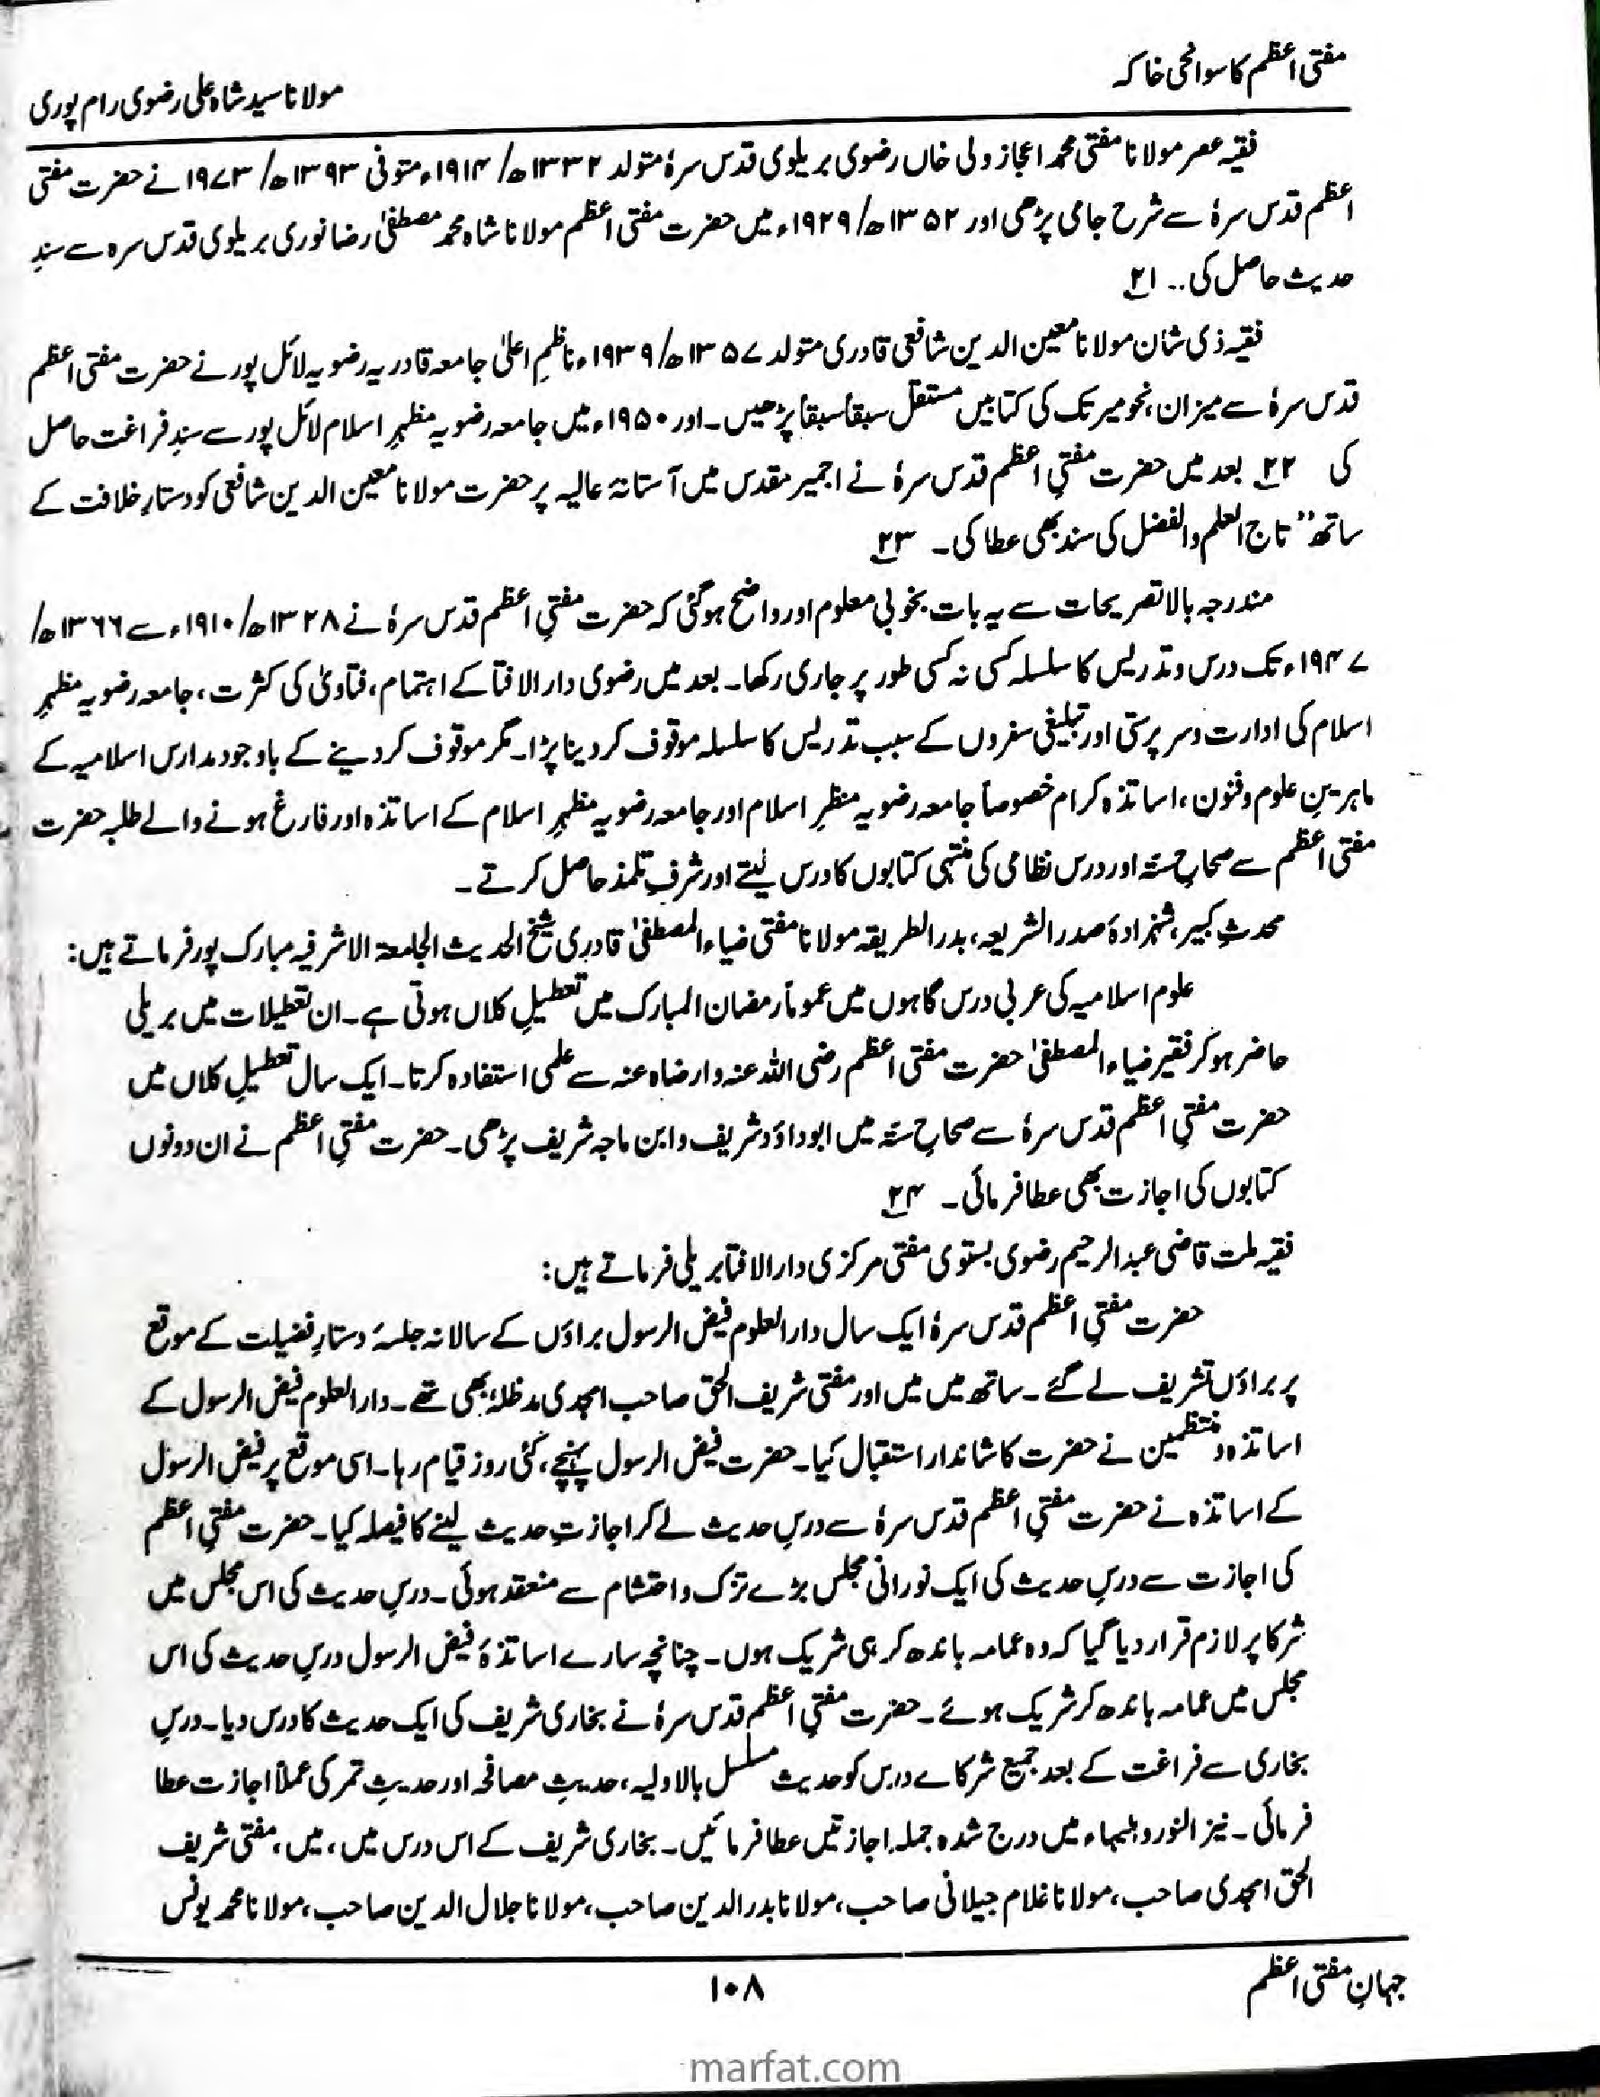 مفتی اعظم کا سوانحی خاکہ
مولانا سید شاہ علی رضوی رام پوری
فقیہ عصر مولانا مفتی محمد اعجاز ولی خاں رضوی بریلوی قدس سرہٗ متولد ۱۳۳۲ھ/ ۱۹۱۴ء متوفی ۱۳۹۳ھ/ ۱۹۷۳ نے حضرت مفتی
اعظم قدس سرہٗ سے شرح جامی پڑھی اور ۱۳۵۲ھ/ ۱۹۲۹ء میں حضرت مفتی اعظم مولانا شاہ محمد مصطفیٰ رضا نوری بریلوی قدس سرہ سے سندِ
حدیث حاصل کی.. ۲۱
فقیہ ذی شان مولانا معین الدین شافعی قادری متولد ۱۳۵۷ھ/ ۱۹۳۹ء ناظمِ اعلیٰ جامعہ قادریہ رضویہ لائل پور نے حضرت مفتی اعظم
قدس سرہٗ سے میزان، نحومیر تک کی کتابیں مستقل سبقاً سبقاً پڑھیں۔ اور ۱۹۵۰ء میں جامعہ رضویہ مظہرِ اسلام لائل پور سے سندِ فراغت حاصل
کی ۲۲ بعد میں حضرت مفتیِ اعظم قدس سرہٗ نے اجمیر مقدس میں آستانۂ عالیہ پر حضرت مولانا معین الدین شافعی کو دستارِ خلافت کے
ساتھ ’’تاج العلم والفضل کی سند بھی عطا کی۔ ۲۳
مندرجہ بالا تصریحات سے یہ بات بخوبی معلوم اور واضح ہوگئی کہ حضرت مفتیِ اعظم قدس سرہٗ نے ۱۳۲۸ھ/ ۱۹۱۰ء سے ۱۳۶۶ھ/
۱۹۴۷ء تک درس و تدریس کا سلسلہ کسی نہ کسی طور پر جاری رکھا۔ بعد میں رضوی دارالافتا کے اہتمام، فتاویٰ کی کثرت، جامعہ رضویہ مظہرِ
اسلام کی ادارت و سرپرستی اور تبلیغی سفروں کے سبب تدریس کا سلسلہ موقوف کر دینا پڑا۔ مگر موقوف کر دینے کے باوجود مدارس اسلامیہ کے
ماہرینِ علوم و فنون، اساتذہ کرام خصوصاً جامعہ رضویہ منظرِ اسلام اور جامعہ رضویہ مظہرِ اسلام کے اساتذہ اور فارغ ہونے والے طلبہ حضرت
مفتی اعظم سے صحاحِ ستہ اور درس نظامی کی منتہی کتابوں کا درس لیتے اور شرفِ تلمذ حاصل کرتے۔
محدثِ کبیر، شہزادۂ صدر الشریعہ، بدر الطریقہ مولانا مفتی ضیاء المصطفیٰ قادری شیخ الحدیث الجامعۃ الاشرفیہ مبارک پور فرماتے ہیں:
علوم اسلامیہ کی عربی درس گاہوں میں عموماً رمضان المبارک میں تعطیلِ کلاں ہوتی ہے۔ ان تعطیلات میں بریلی
حاضر ہوکر فقیر ضیاء المصطفیٰ حضرت مفتی اعظم رضی اللہ عنہ وارضاہ عنہ سے علمی استفادہ کرتا۔ ایک سال تعطیلِ کلاں میں
حضرت مفتیِ اعظم قدس سرہٗ سے صحاحِ ستہ میں ابوداؤد شریف و ابن ماجہ شریف پڑھی۔ حضرت مفتیِ اعظم نے ان دونوں
کتابوں کی اجازت بھی عطا فرمائی۔ ۲۴
فقیہ ملت قاضی عبدالرحیم رضوی بستوی مفتی مرکزی دارالافتا بریلی فرماتے ہیں:
حضرت مفتیِ اعظم قدس سرہٗ ایک سال دارالعلوم فیض الرسول براؤں کے سالانہ جلسۂ دستارِ فضیلت کے موقع
پر براؤں تشریف لے گئے۔ ساتھ میں میں اور مفتی شریف الحق صاحب امجدی مدظلہٗ بھی تھے۔ دارالعلوم فیض الرسول کے
اساتذہ و منتظمین نے حضرت کا شاندار استقبال کیا۔ حضرت فیض الرسول پہنچے، کئی روز قیام رہا۔ اسی موقع پر فیض الرسول
کے اساتذہ نے حضرت مفتیِ اعظم قدس سرہٗ سے درسِ حدیث لے کر اجازتِ حدیث لینے کا فیصلہ کیا۔ حضرت مفتیِ اعظم
کی اجازت سے درسِ حدیث کی ایک نورانی مجلس بڑے تزک و احتشام سے منعقد ہوئی۔ درسِ حدیث کی اس مجلس میں
شرکا پر لازم قرار دیا گیا کہ وہ عمامہ باندھ کر ہی شریک ہوں۔ چنانچہ سارے اساتذۂ فیض الرسول درسِ حدیث کی اس
مجلس میں عمامہ باندھ کر شریک ہوئے۔ حضرت مفتیِ اعظم قدس سرہٗ نے بخاری شریف کی ایک حدیث کا درس دیا۔ درسِ
بخاری سے فراغت کے بعد جمیع شرکاے درس کو حدیث مسلسل بالاولیہ، حدیثِ مصافحہ اور حدیثِ تمر کی عملاً اجازت عطا
فرمائی۔ نیز النور والبہاء میں درج شدہ جملہ اجازتیں عطا فرمائیں۔ بخاری شریف کے اس درس میں، میں، مفتی شریف
الحق امجدی صاحب، مولانا غلام جیلانی صاحب، مولانا بدرالدین صاحب، مولانا جلال الدین صاحب، مولانا محمد یونس
جہانِ مفتی اعظم
۱۰۸
marfat.com